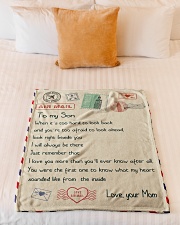 AIR MAIL
To my Son
When it's too hard to look back,
and you're too afraid to look ahead,
look right beside you
I will always be there
Just remember that
I love you more than you'll ever know after all,
You were the first one to know what my heart
sounded like from the inside
Love, your Mom